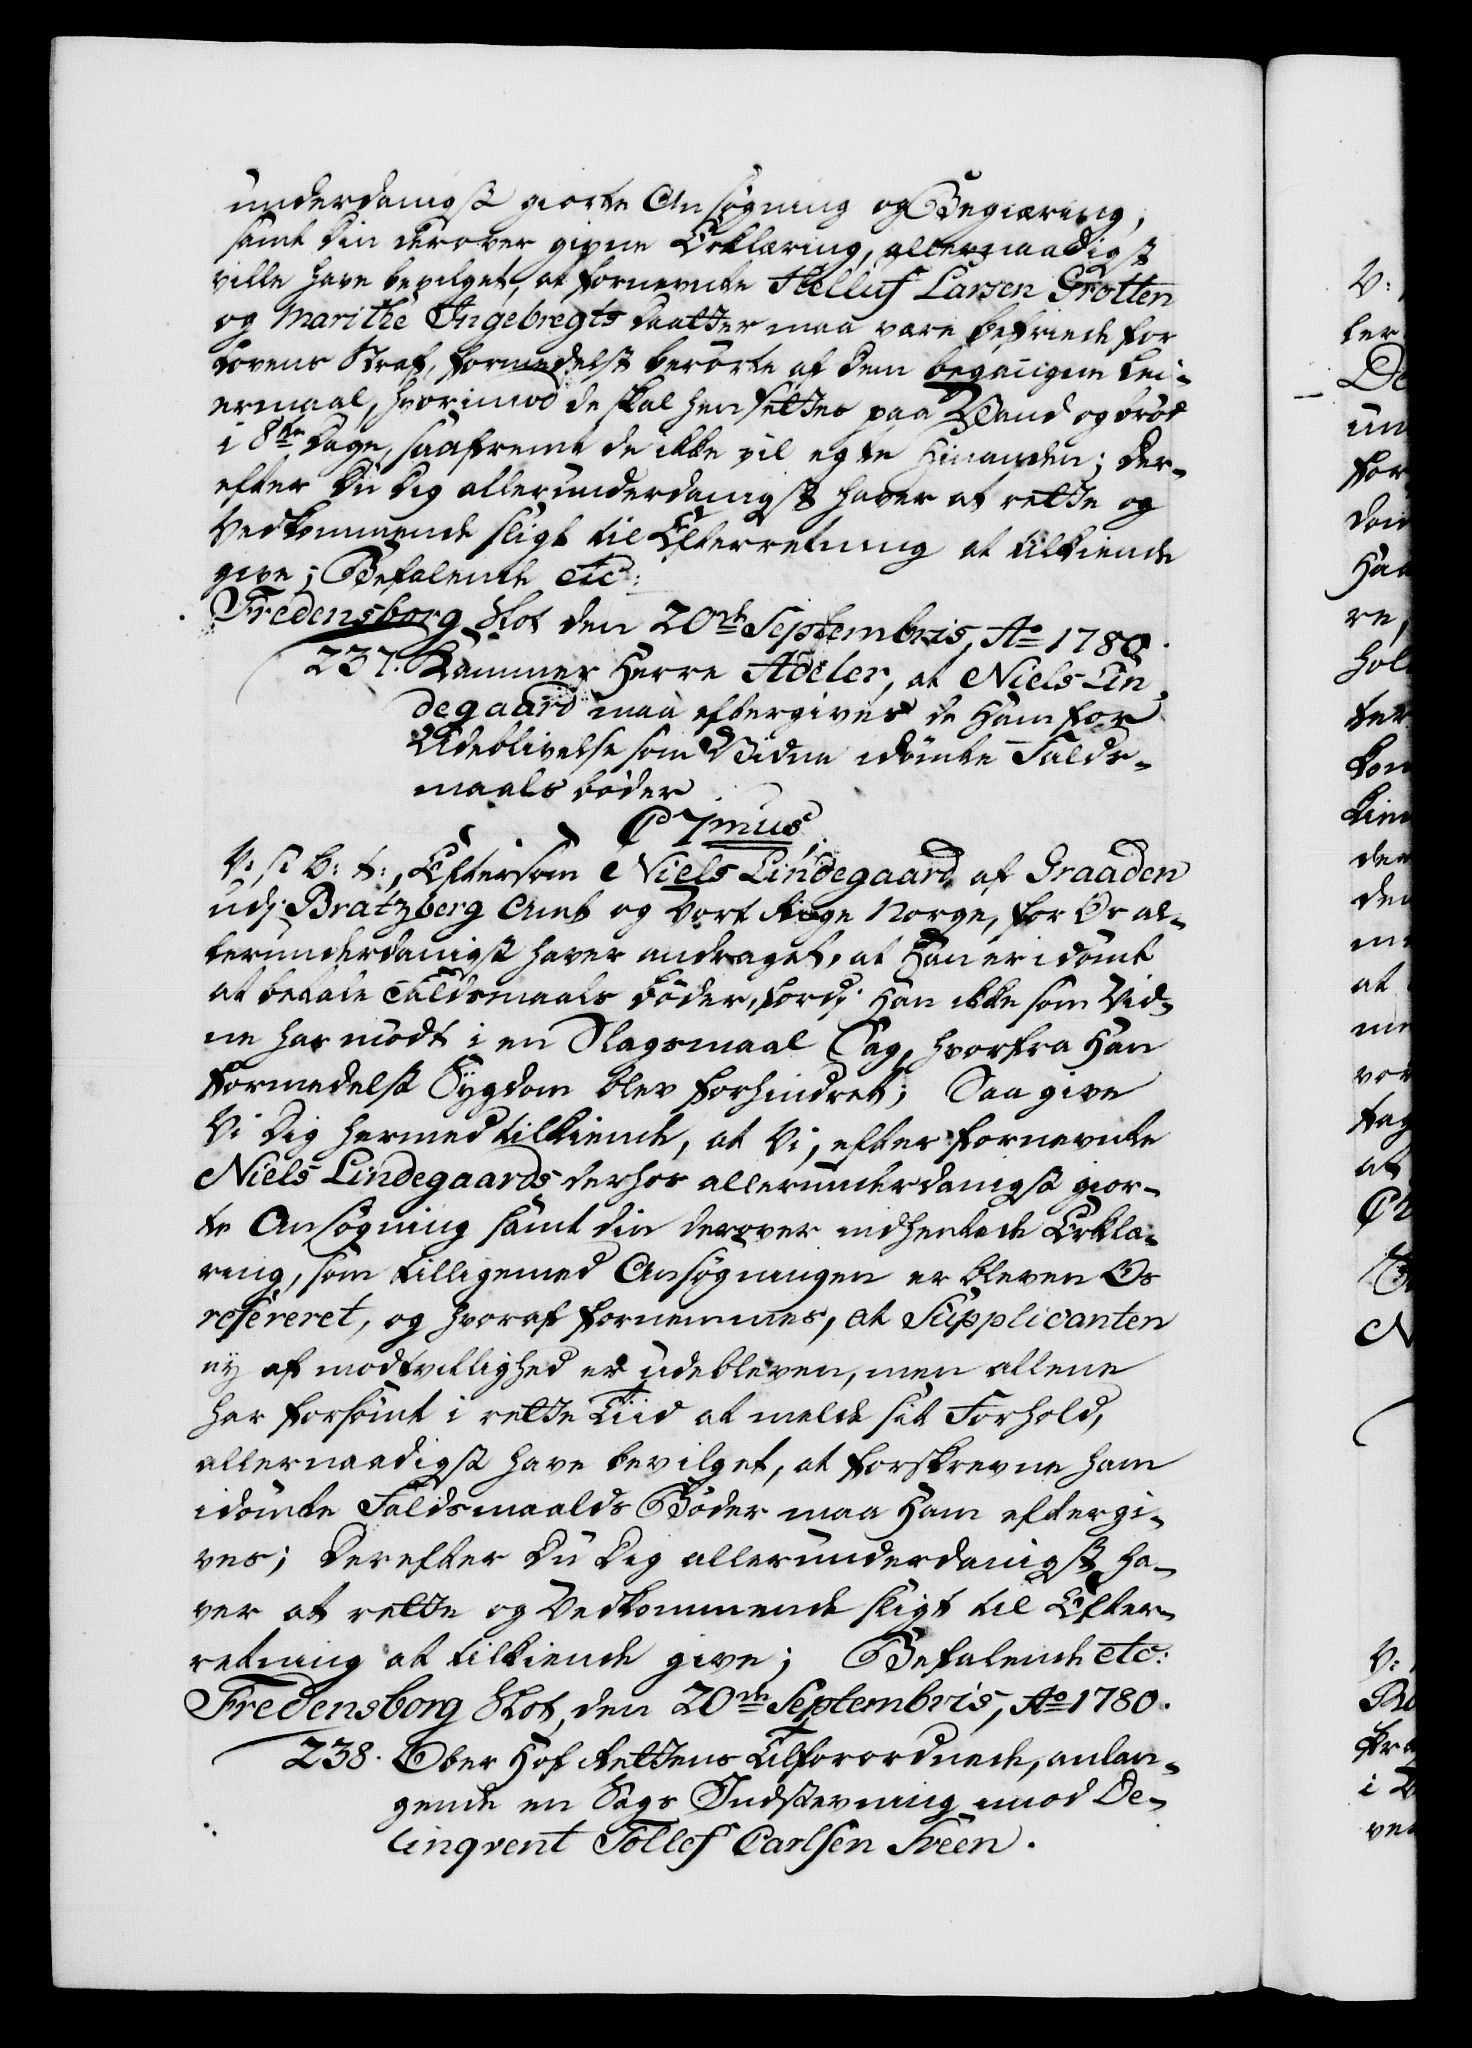 underdanigst giorte Ansøgning og Begiæring,
samt din derover givne Erklæring, allernaadigst
ville have bevilget, at fornevnte Helluf Larsen Grotten
og Marithe Ingebregts daatter maa være befriede for
Lovens Straf, formedelst berørte af dem begangne Lei-
ermaal, hvorimod de skal hensættes paa Vand og brød
i 8te Dage, saafremt de ikke vil egte hinanden; Der-
efter Du Dig allerunderdanigst haver at rette og
Vedkommende sligt til Efterretning at tilkiende
give; Befalende etc:
Fredensborg Slot den 20de Septembris, Ao 1780.
237. Kammer Herre Adeler, at Niels Lin-
degaard maa eftergives de Ham for
Udeblivelse som Vidne idømte Falds-
maals bøder
C 7mus,
V: s: b: t:, Eftersom Niels Lindegaard af Graaden
udj Bratzberg Amt og Vort Rige Norge, for Os al-
lerunderdanigst haver andraget, at Han er idømt
at betale Faldsmaals bøder, fordj Han ikke som Vid-
ne har mødt i en Slagsmaal Sag, hvorfra Han
formedelst Sygdom blev forhindret; Saa give
Vi Dig hermed tilkiende, at Vi, efter fornevnte
Niels Lindegaards derhos allerunderdanigst gior-
te Ansøgning samt din derover indhentede Erklæ-
ring, som tilligemed Ansøgningen er bleven Os
refereret, og hvoraf fornemmes, at Supplicanten
ej af modtvillighed er udebleven, men allene
har forsømt i rette Tiid at melde sit Forhold,
allernaadigst have bevilget, at forskrevne ham
idømte Faldsmaalds Bøder maa Ham eftergi-
ves; Derefter Du Dig allerunderdanigst ha-
ver at rette og Vedkommende sligt til Efter-
retning at tilkiende give; Befalende etc:
Fredensborg Slot, den 20de Septembris, Ao 1780.
238. Ober Hof Rettens Tilforordnede, anlan-
gende en Sags Indstevning imod De-
linqvent Tollef Carlsen Sreen.